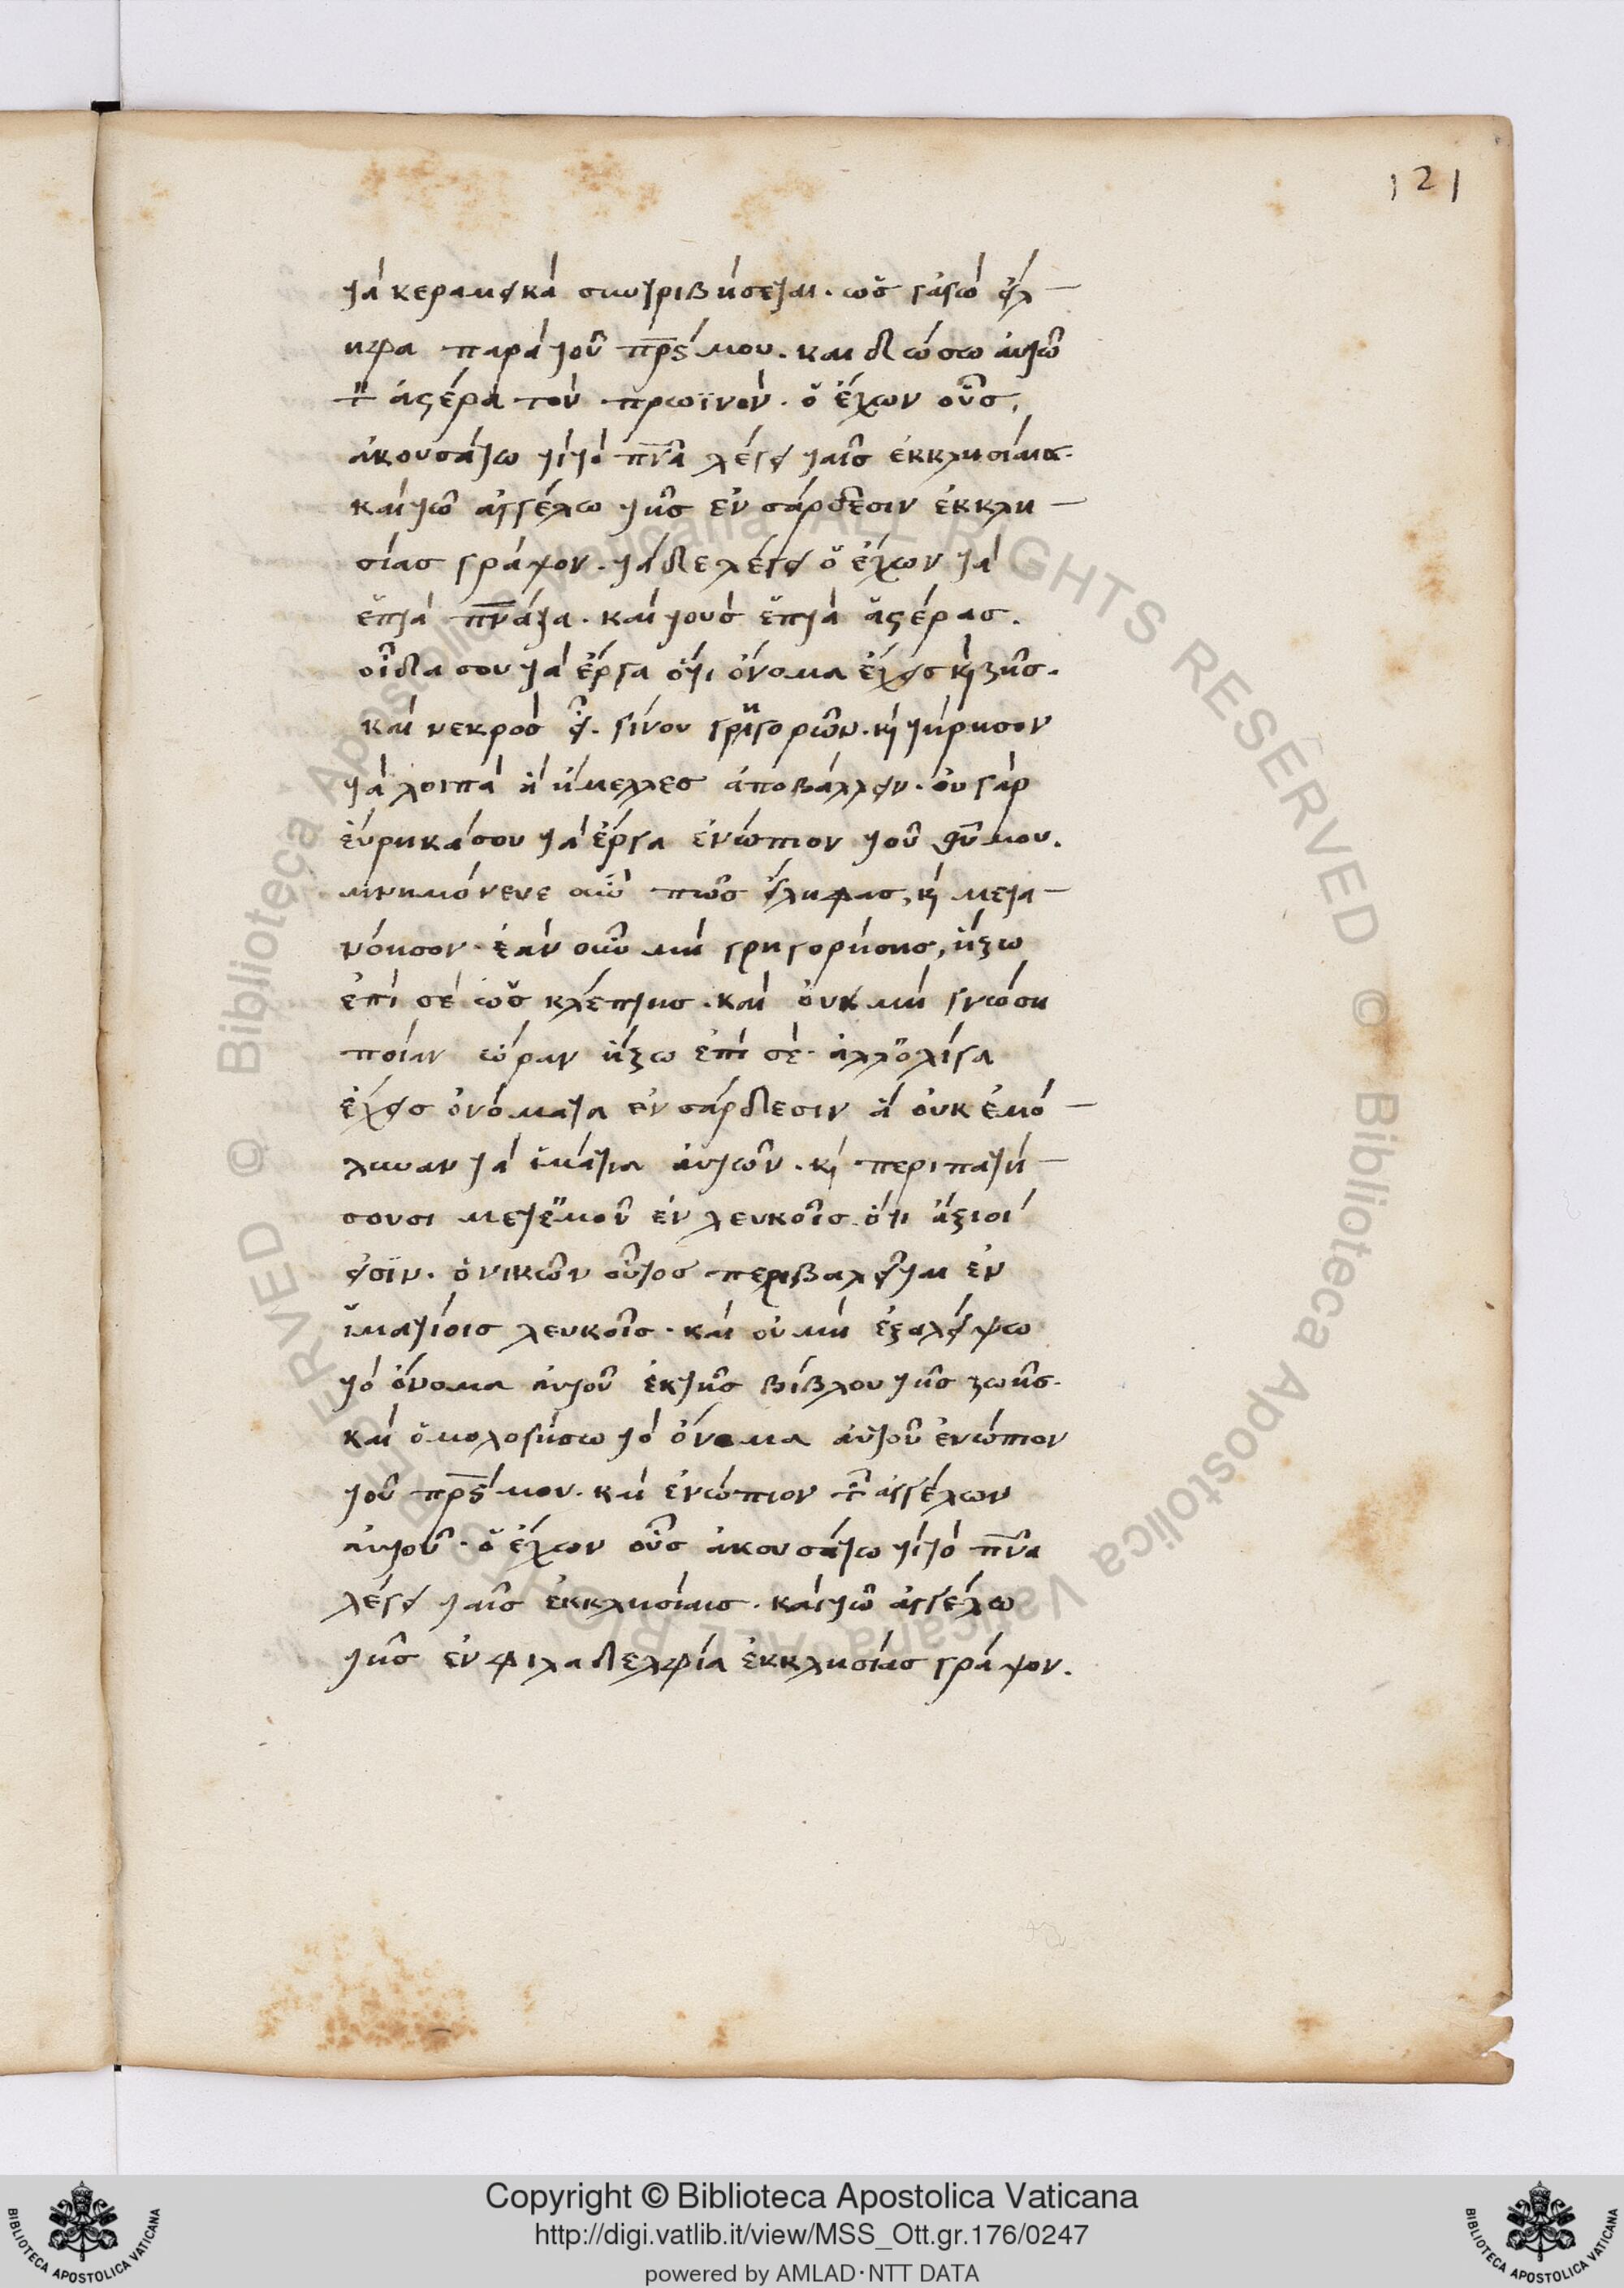 121
τὰ κεραμεικὰ συντριβήσεται. ὡς κἀγὼ εἴλ
ηφα παρὰ τοῦ πρς μου. και δώσω αὐτῶ
τὸν ἀστέρα τὸν πρωϊνὸν. ὁ ἔχων οὖς,
ἀκουσάτω τί τὸ πνα λέγει ταῖς ἐκκλησίαις.
καὶ τῶ ἀγγέλω τῆς ἐν σάρδεσιν ἐκκλη
σίας γράψον. τάδε λέγει ὁ ἔχων τὰ
ἕπτὰ πνατα. καὶ τοὺς ἕπτὰ ἀστέρας.
οἶδα σου τὰ ἔργα ὅτι ὄνομα ἔχεις κὶ ζῆς.
καὶ νεκρὸς εἶ. γίνου γρηγορῶν. κὶ τήρησον
τὰ λοιπὰ ἃ ἤμελλες ἀποβάλλειν. οὐ γὰρ
εὕρηκά σου τὰ ἔργα ἐνώπιον τοῦ θυ μου.
μνημόνευε οὖν πῶς εἴληφας, κὶ μετα
νόησον. ἐὰν οὖν μὴ γρηγορήσης, ἥξω
ἐπὶ σὲ ὡς κλέπτης. καὶ οὐκ μὴ γνώση
ποίαν ὥραν ἥξω ἐπὶ σὲ. ἀλλ' ὀλίγα
ἔχεις ὀνόματα ἐν σάρδεσιν ἃ οὐκ ἐμό
λυναν τὰ ἱμάτια αὐτῶν. κὶ περιπατή
σουσι μετ' ἐμοῦ ἐν λευκοῖς. ὅτι ἄξιοί
εἰσϊν. ὁ νικῶν οὗτος περιβαλεῖται ἐν
ἱματίοις λευκοῖς. καὶ οὐ μὴ ἐξαλείψω
τὸ ὄνομα αὐτοῦ ἐκ τῆς βίβλου τῆς ζωῆς.
καὶ ὁμολογήσω τὸ ὄνομα αὐτοῦ ἐνώπιον
τοῦ πρς μου. καὶ ἐνώπιον τῶν ἀγγέλων
αὐτοῦ. ὁ ἔχων οὖς ἀκουσάτω τί τὸ πνα
λέγει ταῖς ἐκκλησίαις. καὶ τῶ ἀγγέλω
τῆς ἐν φιλαδελφία ἐκκλησίας γράψον.
© Biblioteca Apostolica Vaticana ALL RIGHTS RESERVED © Biblioteca Apostolica Vaticana ALL RIGHTS RESERVED
Copyright © Biblioteca Apostolica Vaticana
http://digi.vatlib.it/view/MSS_Ott.gr.176/0247
powered by AMLAD·NTT DATA
BIBLIOTECA APOSTOLICA VATICANA
BIBLIOTECA APOSTOLICA VATICANA